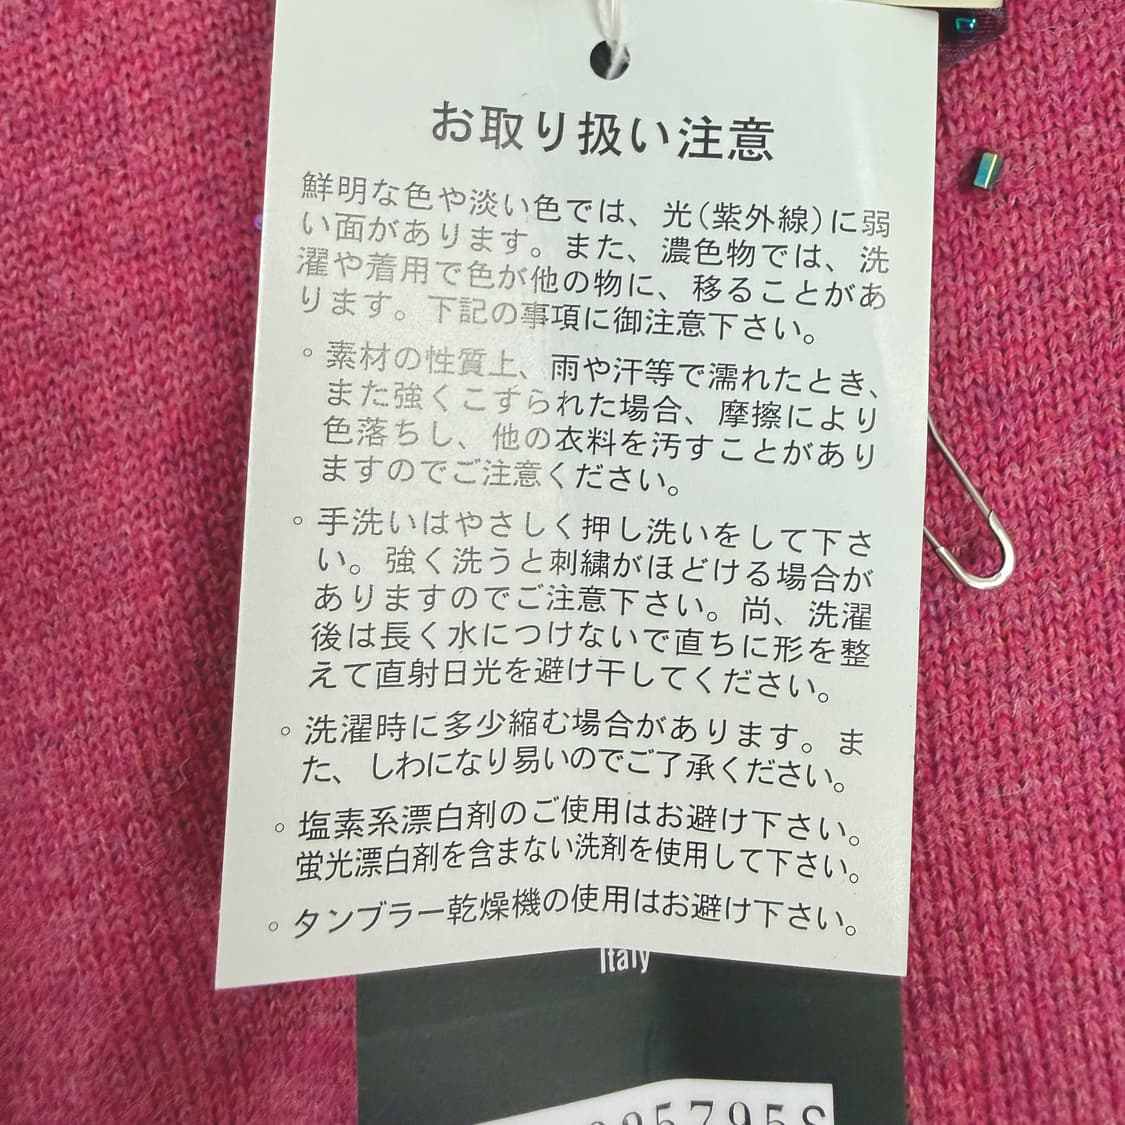 お取り扱い注意
鮮明な色や淡い色では、光(紫外線)に弱
い面があります。また、濃色物では、洗
濯や着用で色が他の物に、移ることがあ
ります。下記の事項に御注意下さい。
◦素材の性質上、雨や汗等で濡れたとき、
また強くこすられた場合、摩擦により
色落ちし、他の衣料を汚すことがあり
ますのでご注意ください。
◦手洗いはやさしく押し洗いをして下さ
い。強く洗うと刺繍がほどける場合が
ありますのでご注意下さい。尚、洗濯
後は長く水につけないで直ちに形を整
えて直射日光を避け干してください。
◦洗濯時に多少縮む場合があります。ま
た、しわになり易いのでご了承ください。
◦塩素系漂白剤のご使用はお避け下さい。
蛍光漂白剤を含まない洗剤を使用して下さい。
◦タンブラー乾燥機の使用はお避け下さい。
Italy